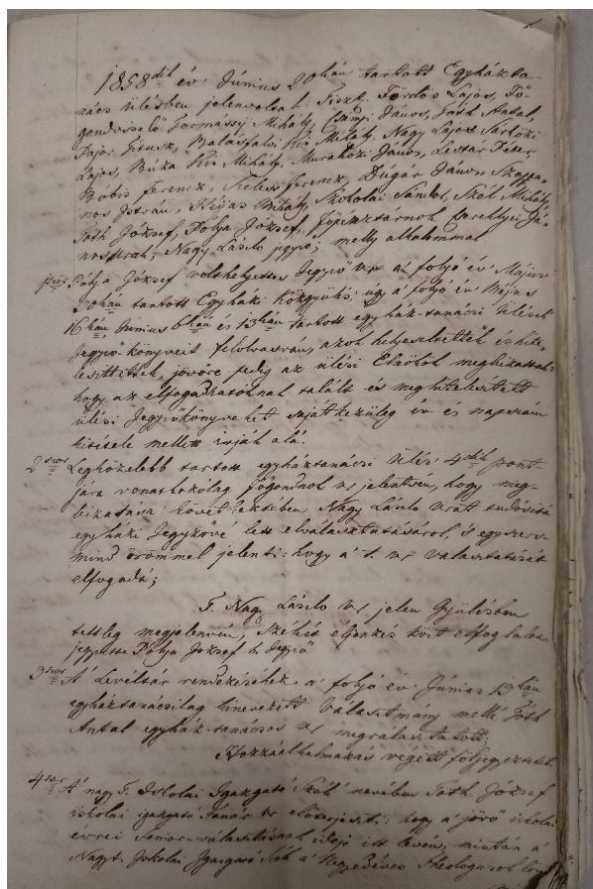 1858dik év Június 20kán tartott Egyházta-
nács ülésben jelenvoltak: Tiszt. Fördős Lajos, Fő-
gondviselő Formássy Mihály, Csányi János, Tóth Antal,
Fajor Titusz, Balásfalvi Kis Mihály, Nagy Lajos
Lajos, Búza Kis Mihály, Muraközi János, Lestár Péter,
Bóbis Ferencz, Ferencz, Dugár János, Szappa-
nos István, Héjjas Mihály, Szokolai Sándor, Mihály,
Tóth József, Pólya József, Főpénztárnok Já-
nos urak, Nagy László jegyző; melly alkalommal
Pólya József volt helyettes Jegyző úr a' folyó év Május
tartott Egyházi Közgyűlés, úgy a' folyó év Május
16kán Június 6kán és 13kán tartott egyház-tanácsi ülések
Jegyző könyveit felolvasván, azok helyeseltettek és hite-
lesíttettek, jövőre pedig az ülési Elnökök megbízattak:
hogy az elfogadhatóknak talált és meghitelesített
ülési Jegyzőkönyveket sajátkezüleg év és napszám
kitétele mellett írják alá.
2szor Legközelebb tartott egyháztanácsi ülés 4dik pont-
jára vonatkozólag főgondnok úr jelentvén, hogy meg-
bizatása következtében Nagy László urat tudósítá
egyházi Jegyzővé lett elválasztatásáról, 's egyszers-
mind örömmel jelenti: hogy a' t. úr választatását
elfogadá;
T. Nagy László úr jelen Gyűlésben
tettleg megjelenvén, Székét éljenzés közt elfoglalva
jegyzette Pólya József h. Jegyző
3szor A' Levéltár rendezésének a' folyó év Június 13kán
egyháztanácsilag kinevezett választmány mellé Tóth
Antal egyház-tanácsos úr megválasztatott;
Hozzáalkalmazás végett följegyeztetett.
4szer A' nagy T. Oskolai Igazgató Szék nevében Tóth József
iskolai igazgató Tanár úr előterjeszti: hogy a' jövő iskolai
évrei Senior-választásnak ideje itt lévén, miután a'
Nagyt. Iskolai Igazgató Szék a' negyedéves Theologusok